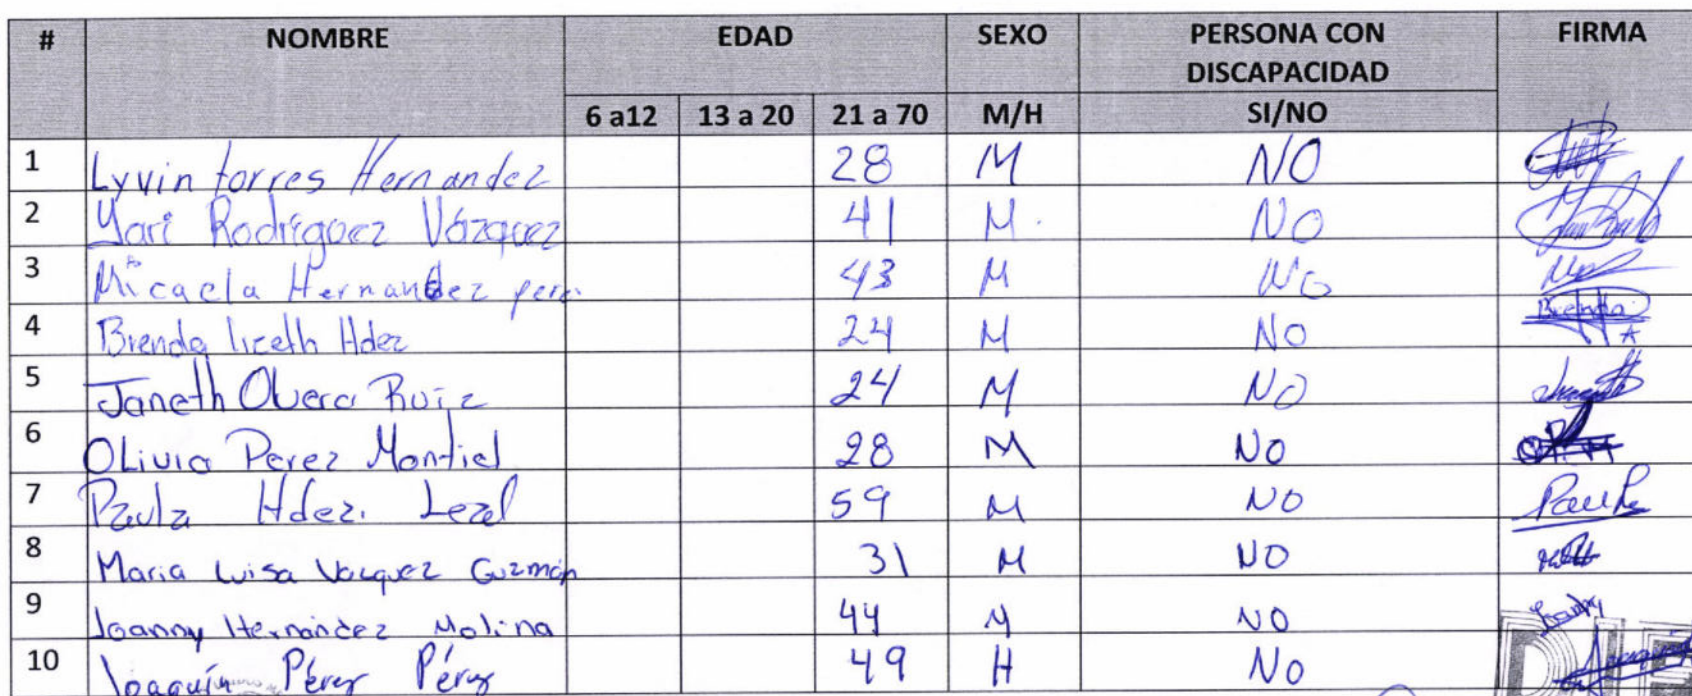 # NOMBRE EDAD SEXO PERSONA CON DISCAPACIDAD FIRMA
6 a12 13 a 20 21 a 70 M/H SI/NO
1 Lyvin torres Hernandez 28 M NO
2 Yari Rodríguez Vázquez 41 M. NO
3 Micaela Hernandez pere 43 M NO
4 Brenda liceth Hdez 24 M NO Brenda
5 Janeth Olvera Ruiz 24 M NO
6 OLivia Perez Montiel 28 M NO
7 Paula Hdez. Leal 59 M NO
8 Maria Luisa Vazquez Guzmán 31 M NO
9 Joanny Hernández Molina 44 M NO
10 Joaquín Pérez Pérez 49 H No